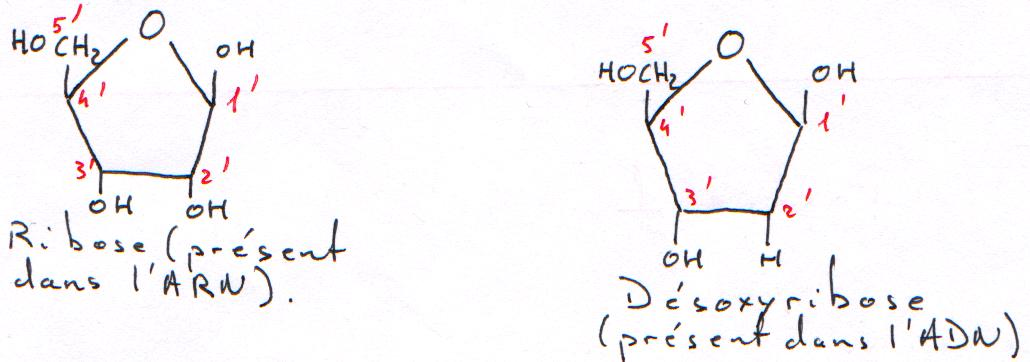 5'
O
HOCH2
OH
4'
1'
3'
2'
OH
OH
Ribose (présent
dans l'ARN).
5'
O
HOCH2
OH
4'
1'
3'
2'
OH
H
Désoxyribose
(présent dans l'ADN)